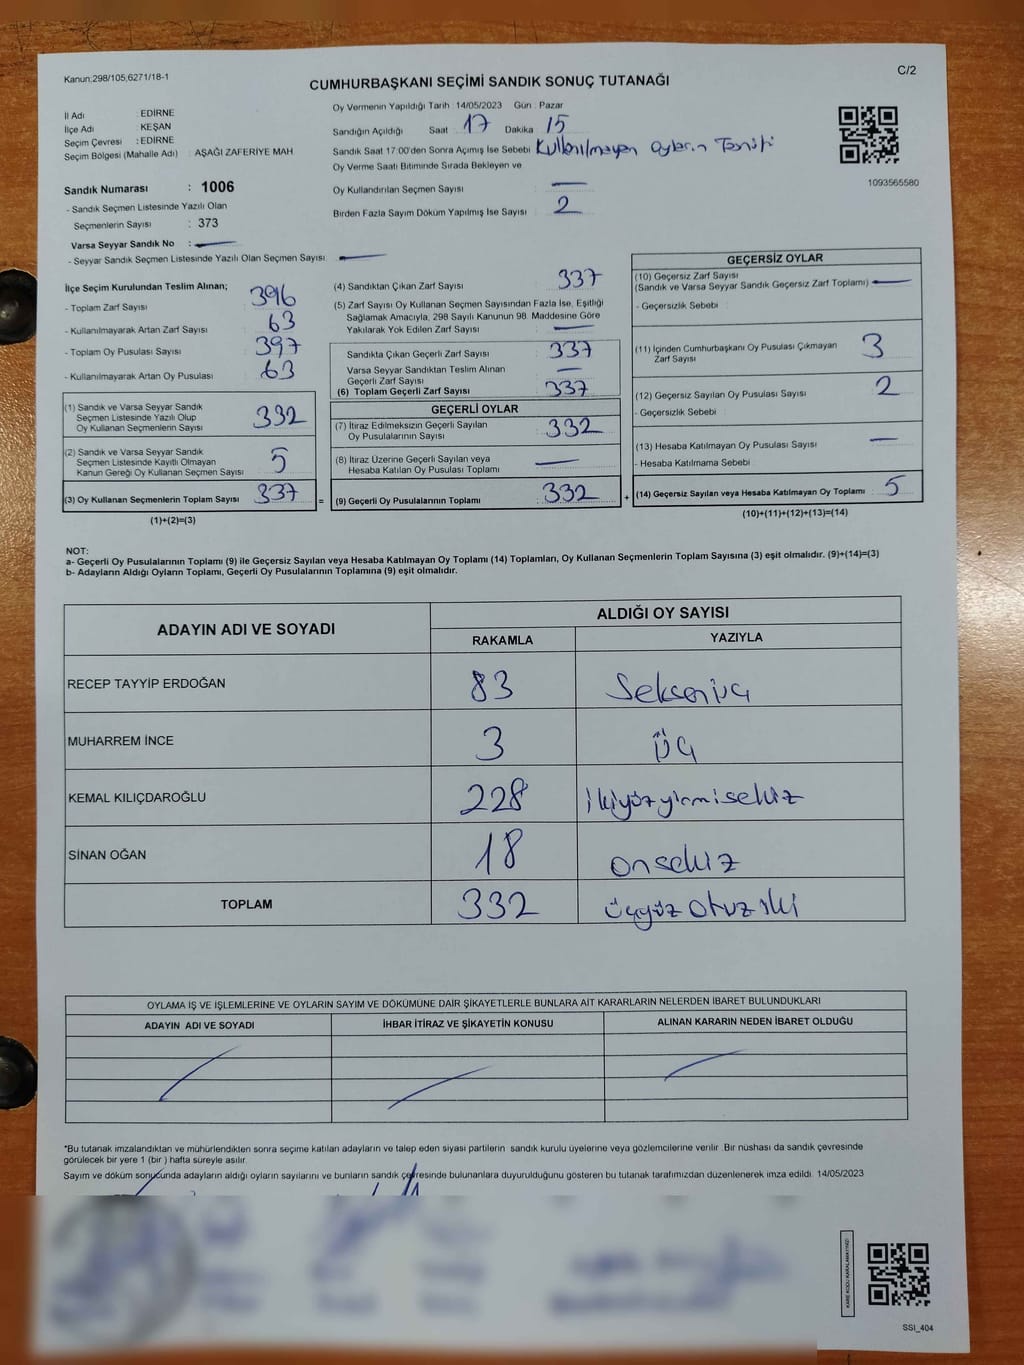 Kanun:298/105,6271/18-1
C/2
CUMHURBAŞKANI SEÇİMİ SANDIK SONUÇ TUTANAĞI
İl Adı : EDİRNE
İlçe Adı : KEŞAN
Seçim Çevresi : EDİRNE
Seçim Bölgesi (Mahalle Adı) : AŞAĞI ZAFERİYE MAH
Oy Vermenin Yapıldığı Tarih : 14/05/2023 Gün : Pazar
Sandığın Açıldığı Saat : 17 Dakika : 15
Sandık Saat 17:00'den Sonra Açımış İse Sebebi : Kullanılmayan oyların Tesniti
Oy Verme Saati Bitiminde Sırada Bekleyen ve
Oy Kullandırılan Seçmen Sayısı : —
Birden Fazla Sayım Döküm Yapılmış İse Sayısı : 2
1093565580
Sandık Numarası : 1006
- Sandık Seçmen Listesinde Yazılı Olan
Seçmenlerin Sayısı : 373
Varsa Seyyar Sandık No : —
- Seyyar Sandık Seçmen Listesinde Yazılı Olan Seçmen Sayısı : —
İlçe Seçim Kurulundan Teslim Alınan;
- Toplam Zarf Sayısı : 396
- Kullanılmayarak Artan Zarf Sayısı : 63
- Toplam Oy Pusulası Sayısı : 397
- Kullanılmayarak Artan Oy Pusulası : 63
(1) Sandık ve Varsa Seyyar Sandık
Seçmen Listesinde Yazılı Olup
Oy Kullanan Seçmenlerin Sayısı : 332
(2) Sandık ve Varsa Seyyar Sandık
Seçmen Listesinde Kayıtlı Olmayan
Kanun Gereği Oy Kullanan Seçmen Sayısı : 5
(3) Oy Kullanan Seçmenlerin Toplam Sayısı : 337 =
(1)+(2)=(3)
(4) Sandıktan Çıkan Zarf Sayısı : 337
(5) Zarf Sayısı Oy Kullanan Seçmen Sayısından Fazla İse, Eşitliği
Sağlamak Amacıyla, 298 Sayılı Kanunun 98. Maddesine Göre
Yakılarak Yok Edilen Zarf Sayısı : —
Sandıkta Çıkan Geçerli Zarf Sayısı : 337
Varsa Seyyar Sandıktan Teslim Alınan
Geçerli Zarf Sayısı : —
(6) Toplam Geçerli Zarf Sayısı : 337
GEÇERLİ OYLAR
(7) İtiraz Edilmeksizin Geçerli Sayılan
Oy Pusulalarının Sayısı : 332
(8) İtiraz Üzerine Geçerli Sayılan veya
Hesaba Katılan Oy Pusulası Toplamı : —
(9) Geçerli Oy Pusulalarının Toplamı : 332 +
GEÇERSİZ OYLAR
(10) Geçersiz Zarf Sayısı
(Sandık ve Varsa Seyyar Sandık Geçersiz Zarf Toplamı) : —
- Geçersizlik Sebebi :
(11) İçinden Cumhurbaşkanı Oy Pusulası Çıkmayan
Zarf Sayısı : 3
(12) Geçersiz Sayılan Oy Pusulası Sayısı : 2
- Geçersizlik Sebebi :
(13) Hesaba Katılmayan Oy Pusulası Sayısı : —
- Hesaba Katılmama Sebebi :
(14) Geçersiz Sayılan veya Hesaba Katılmayan Oy Toplamı : 5
(10)+(11)+(12)+(13)=(14)
NOT:
a- Geçerli Oy Pusulalarının Toplamı (9) ile Geçersiz Sayılan veya Hesaba Katılmayan Oy Toplamı (14) Toplamları, Oy Kullanan Seçmenlerin Toplam Sayısına (3) eşit olmalıdır. (9)+(14)=(3)
b- Adayların Aldığı Oyların Toplamı, Geçerli Oy Pusulalarının Toplamına (9) eşit olmalıdır.
ADAYIN ADI VE SOYADI
ALDIĞI OY SAYISI
RAKAMLA YAZIYLA
RECEP TAYYİP ERDOĞAN 83 Seksenüç
MUHARREM İNCE 3 üç
KEMAL KILIÇDAROĞLU 228 ikiyüzyirmisekiz
SİNAN OĞAN 18 onsekiz
TOPLAM 332 üçyüz otuz iki
OYLAMA İŞ VE İŞLEMLERİNE VE OYLARIN SAYIM VE DÖKÜMÜNE DAİR ŞİKAYETLERLE BUNLARA AİT KARARLARIN NELERDEN İBARET BULUNDUKLARI
ADAYIN ADI VE SOYADI İHBAR İTİRAZ VE ŞİKAYETİN KONUSU ALINAN KARARIN NEDEN İBARET OLDUĞU
*Bu tutanak imzalandıktan ve mühürlendikten sonra seçime katılan adayların ve talep eden siyasi partilerin sandık kurulu üyelerine veya gözlemcilerine verilir. Bir nüshası da sandık çevresinde
görülecek bir yere 1 (bir ) hafta süreyle asılır.
Sayım ve döküm sonucunda adayların aldığı oyların sayılarını ve bunların sandık çevresinde bulunanlara duyurulduğunu gösteren bu tutanak tarafımızdan düzenlenerek imza edildi. 14/05/2023
KARE KODU KARALAMAYINIZ!
SSI_404